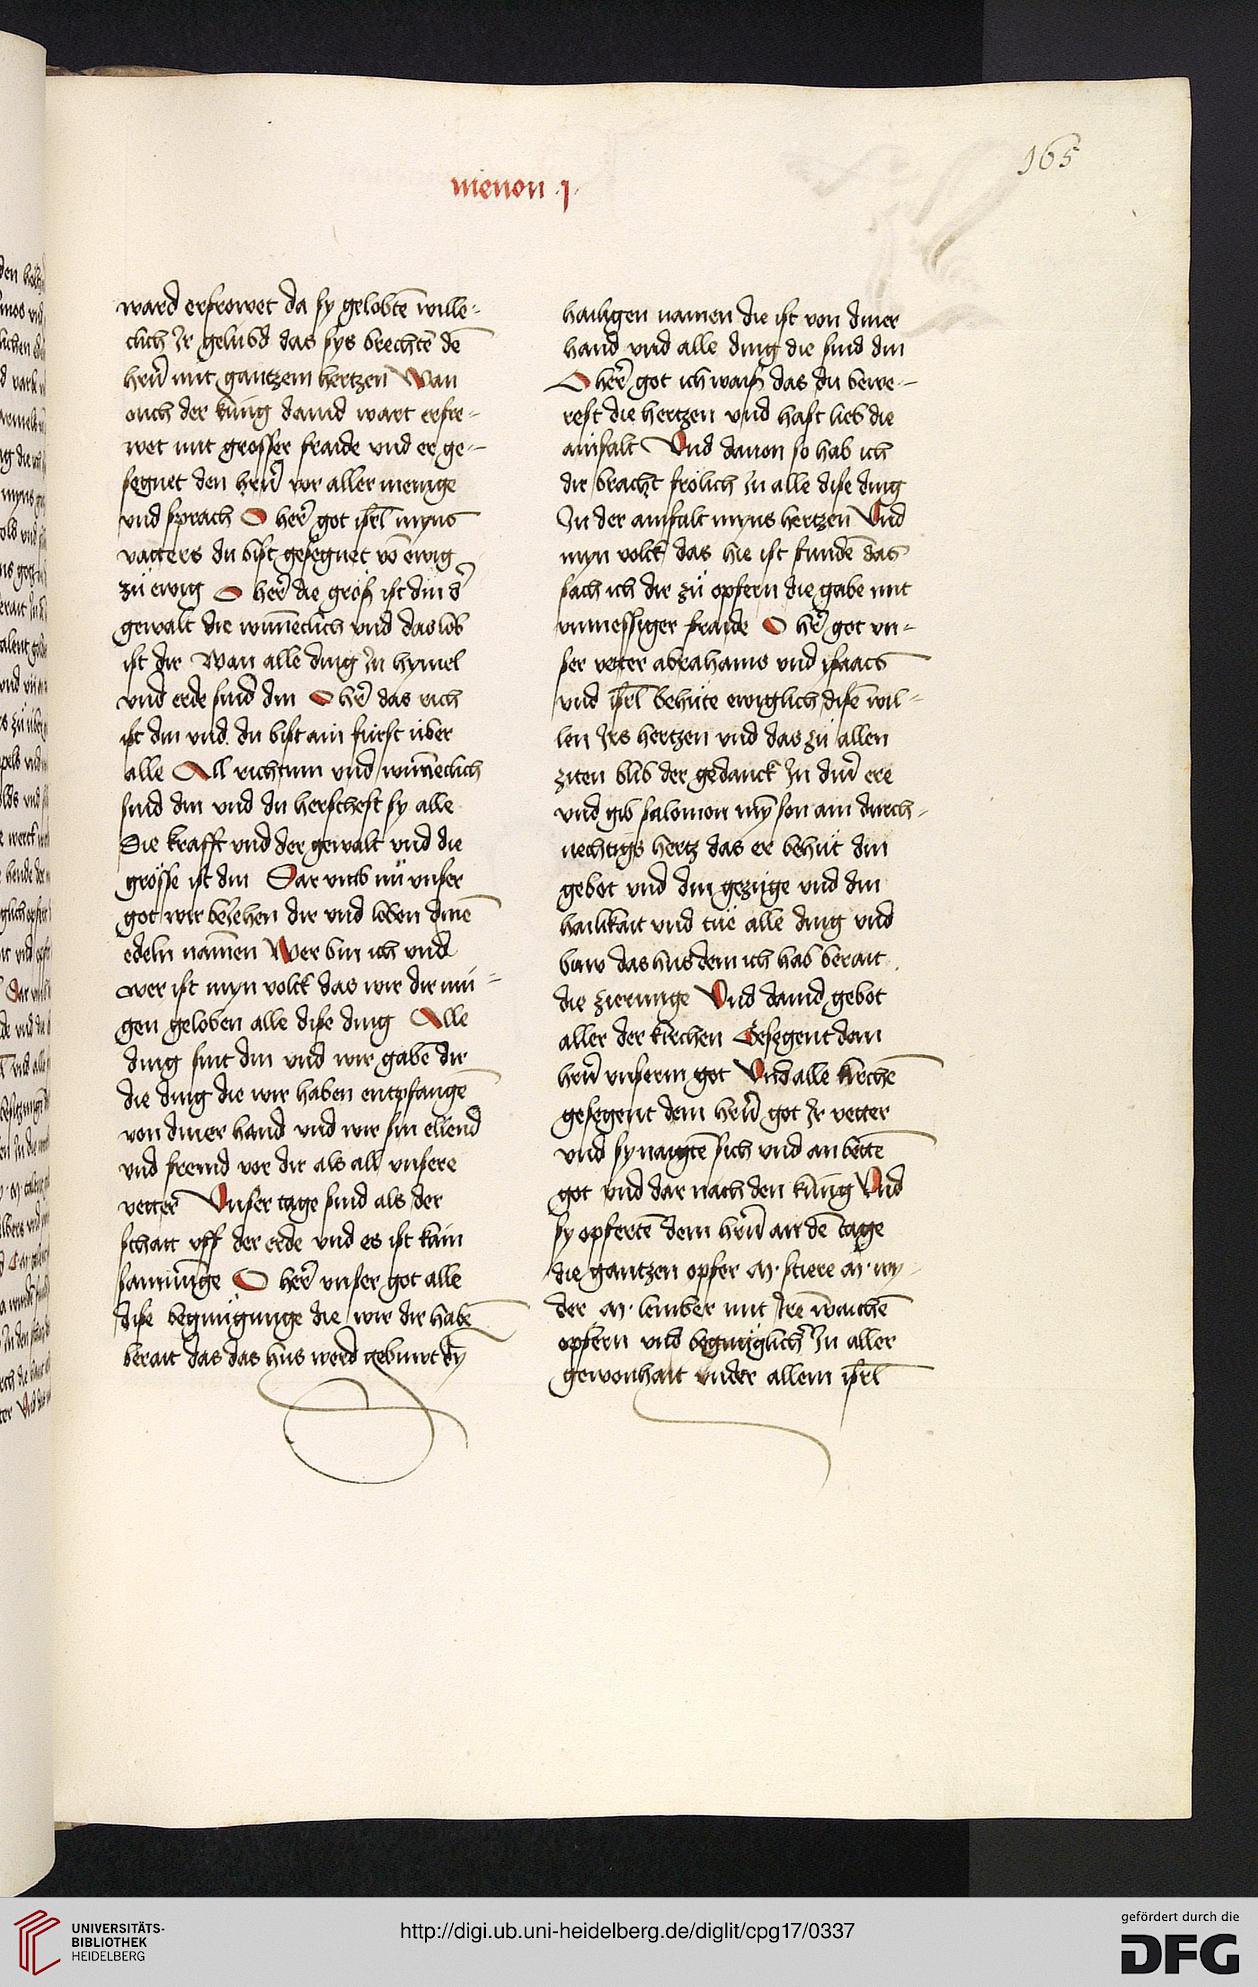 165
menon ·j·
ward erfrowet da sy gelobtē wille-
clich Ir gelubd das sys brechtē dē
hern̄ mit gantzem hertzen Wan
ouch der kúnig dauid wart erfre-
wet mit grosser fraide vnd er ge-
segnet den hern̄ vor aller menige
vnd sprach O her̄ got isrl̄ myns
vatters du bist gesegnet vō ewig
zů ewig O her̄ die gröss ist din d'
gewalt die wuneclich vnd das lob
ist dir Wan alle ding In hymel
vnd erde sind din O her̄ das rich
ist din vnd du bist ain fürst über
alle All richtum vnd wunneclich
sind din vnd du herschest sy alle
Die krafft vnd der gewalt vnd die
grösse ist din Dar vmb nu vnser
got wir beiehen dir vnd loben dinē
edeln namen Wer bin ich vnd
wer ist myn volck das wir dir mü-
gen geloben alle dise ding Alle
ding sint din vnd wir gabē dir
die ding die wir haben entpfangē
von diner hand vnd wir sin ellend
vnd fremd vor dir als all vnsere
vetter Vnser tage sind als der
schatt vff der erde vnd es ist kain
samnūnge O her̄ vnser got alle
dise begnúgunge die wir dir habē
berait das das hus werd gebuwt dȳ
hailigen namen die ist von diner
hand vnd alle ding die sind din
O her̄ got ich waiss das du bewe-
rest die hertzen vnd hast lieb die
ainfalt Vnd dauon so hab ich
dir bracht frölich In alle dise ding
In der ainfalt myns hertzen Vnd
myn volck das hie ist fundē das
sach ich dir zů opfern die gabe mit
vnmessiger fraide O her̄ got vn-
ser vetter abrahams vnd ysaacs
vnd isrl̄ behüte ewiglich disē wil-
len Irs hertzen vnd das zů allen
ziten blib der gedanck In dinr̄ ere
vnd gib salomon mȳ son ain durch-
nechtigs hertz das er behüt din
gebot vnd din gezüge vnd din
hailikait vnd tüe alle ding vnd
buw das hus dem ich hab berait
die zierunge Vnd dauid gebot
aller der kirchen Gesegent dem
hern̄ vnserm got Vnd alle kirchē
gesegent dem hern̄ got Ir vetter
vnd sy naigtē sich vnd an bettē
got vnd dar nach den kúnig Vnd
sy opfertē dem hern̄ an dē tage
die gantzen opfer M· stiere M· wy-
der M· lember mit Irē waichē
opfern vnd begnúglich In aller
gewonhait vnder allem isrl̄
UNIVERSITÄTS-
BIBLIOTHEK
HEIDELBERG
http://digi.ub.uni-heidelberg.de/diglit/cpg17/0337
gefördert durch die
DFG